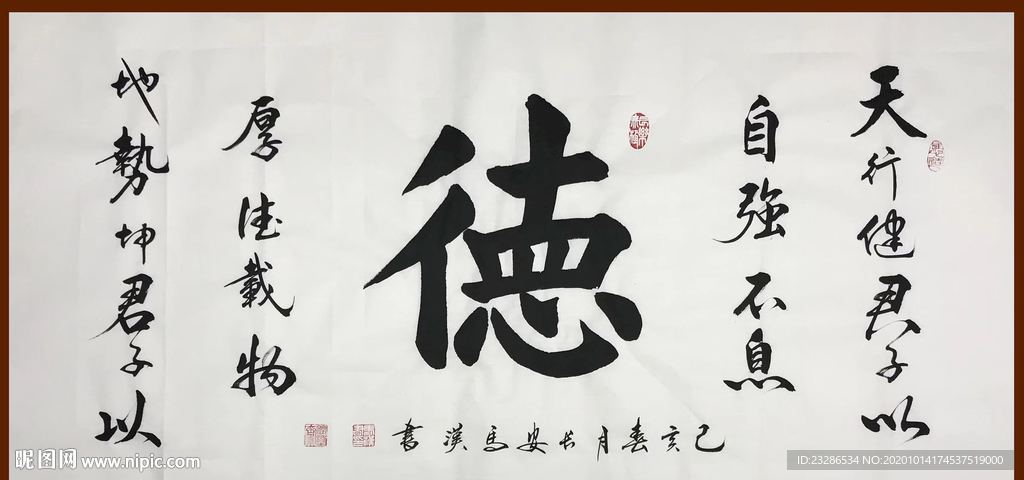 天行健君子以
自強不息
德
地勢坤君子以
厚德載物
己亥春月长安馬漢書
昵图网 www.nipic.com
ID:23286534 NO:20201014174537519000